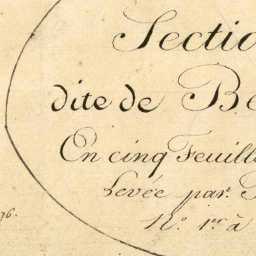 Sectio
dite de Be
En cinq Feuille
Levée par
N.o 1.er à
96.